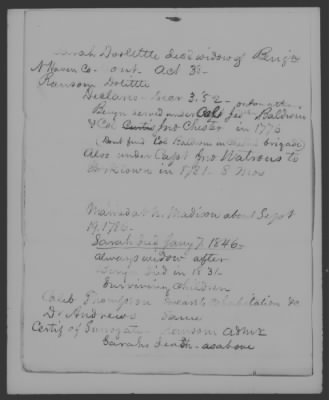 Sarah Doolittle decd widow of Benjn
N Haven Co - Conn. Act 38 -
Ransom Dolittle
Declares - Mar 3. 52 -
Benjn served under Capt Baldwin
& Col Curtis Jno Chester in 1776
(Dont find Col Baldwin in brigade)
Also under Capt Jno Watrous to
in 1781 - 8 mos
Married at N. Madison about Sept
19. 1786 -
Sarah died Jany 7. 1846 -
always widow after
Benj. died in 1831 -
Surviving children
Caleb Thompson &c
Dr Andrews Same
Certif of Surrogate - Ransom admr
Sarahs death - as above